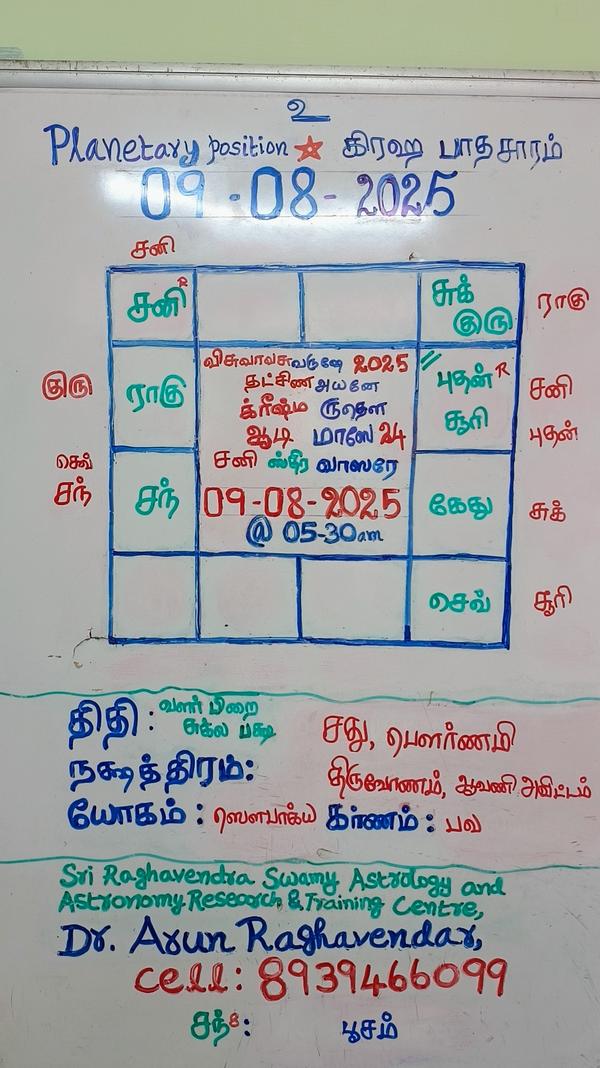 உ
Planetary position கிரஹ பாதசாரம்
09-08-2025
சனி
சனி R
சுக்
குரு
ராகு
குரு
ராகு
விசுவாவசுவருஷே 2025
தட்சிண அயனே
க்ரீஷ்ம ருதௌ
ஆடி மாஸே 24
சனி ஸ்திர வாஸரே
09-08-2025
@ 05-30am
புதன் R
சூரி
சனி
புதன்
செவ்
சந்
சந்
கேது
சுக்
செவ்
சூரி
திதி : வளர் பிறை
சுக்ல பக்ஷ
சது, பௌர்ணமி
நக்ஷத்திரம்:
திருவோணம், ஆவணி அவிட்டம்
யோகம் : ஸௌபாக்ய கர்ணம் : பவ
Sri Raghavendra Swamy Astrology and
Astronomy Research & Training Centre,
Dr. Arun Raghavendar,
cell: 8939466099
சந் 8: பூசம்